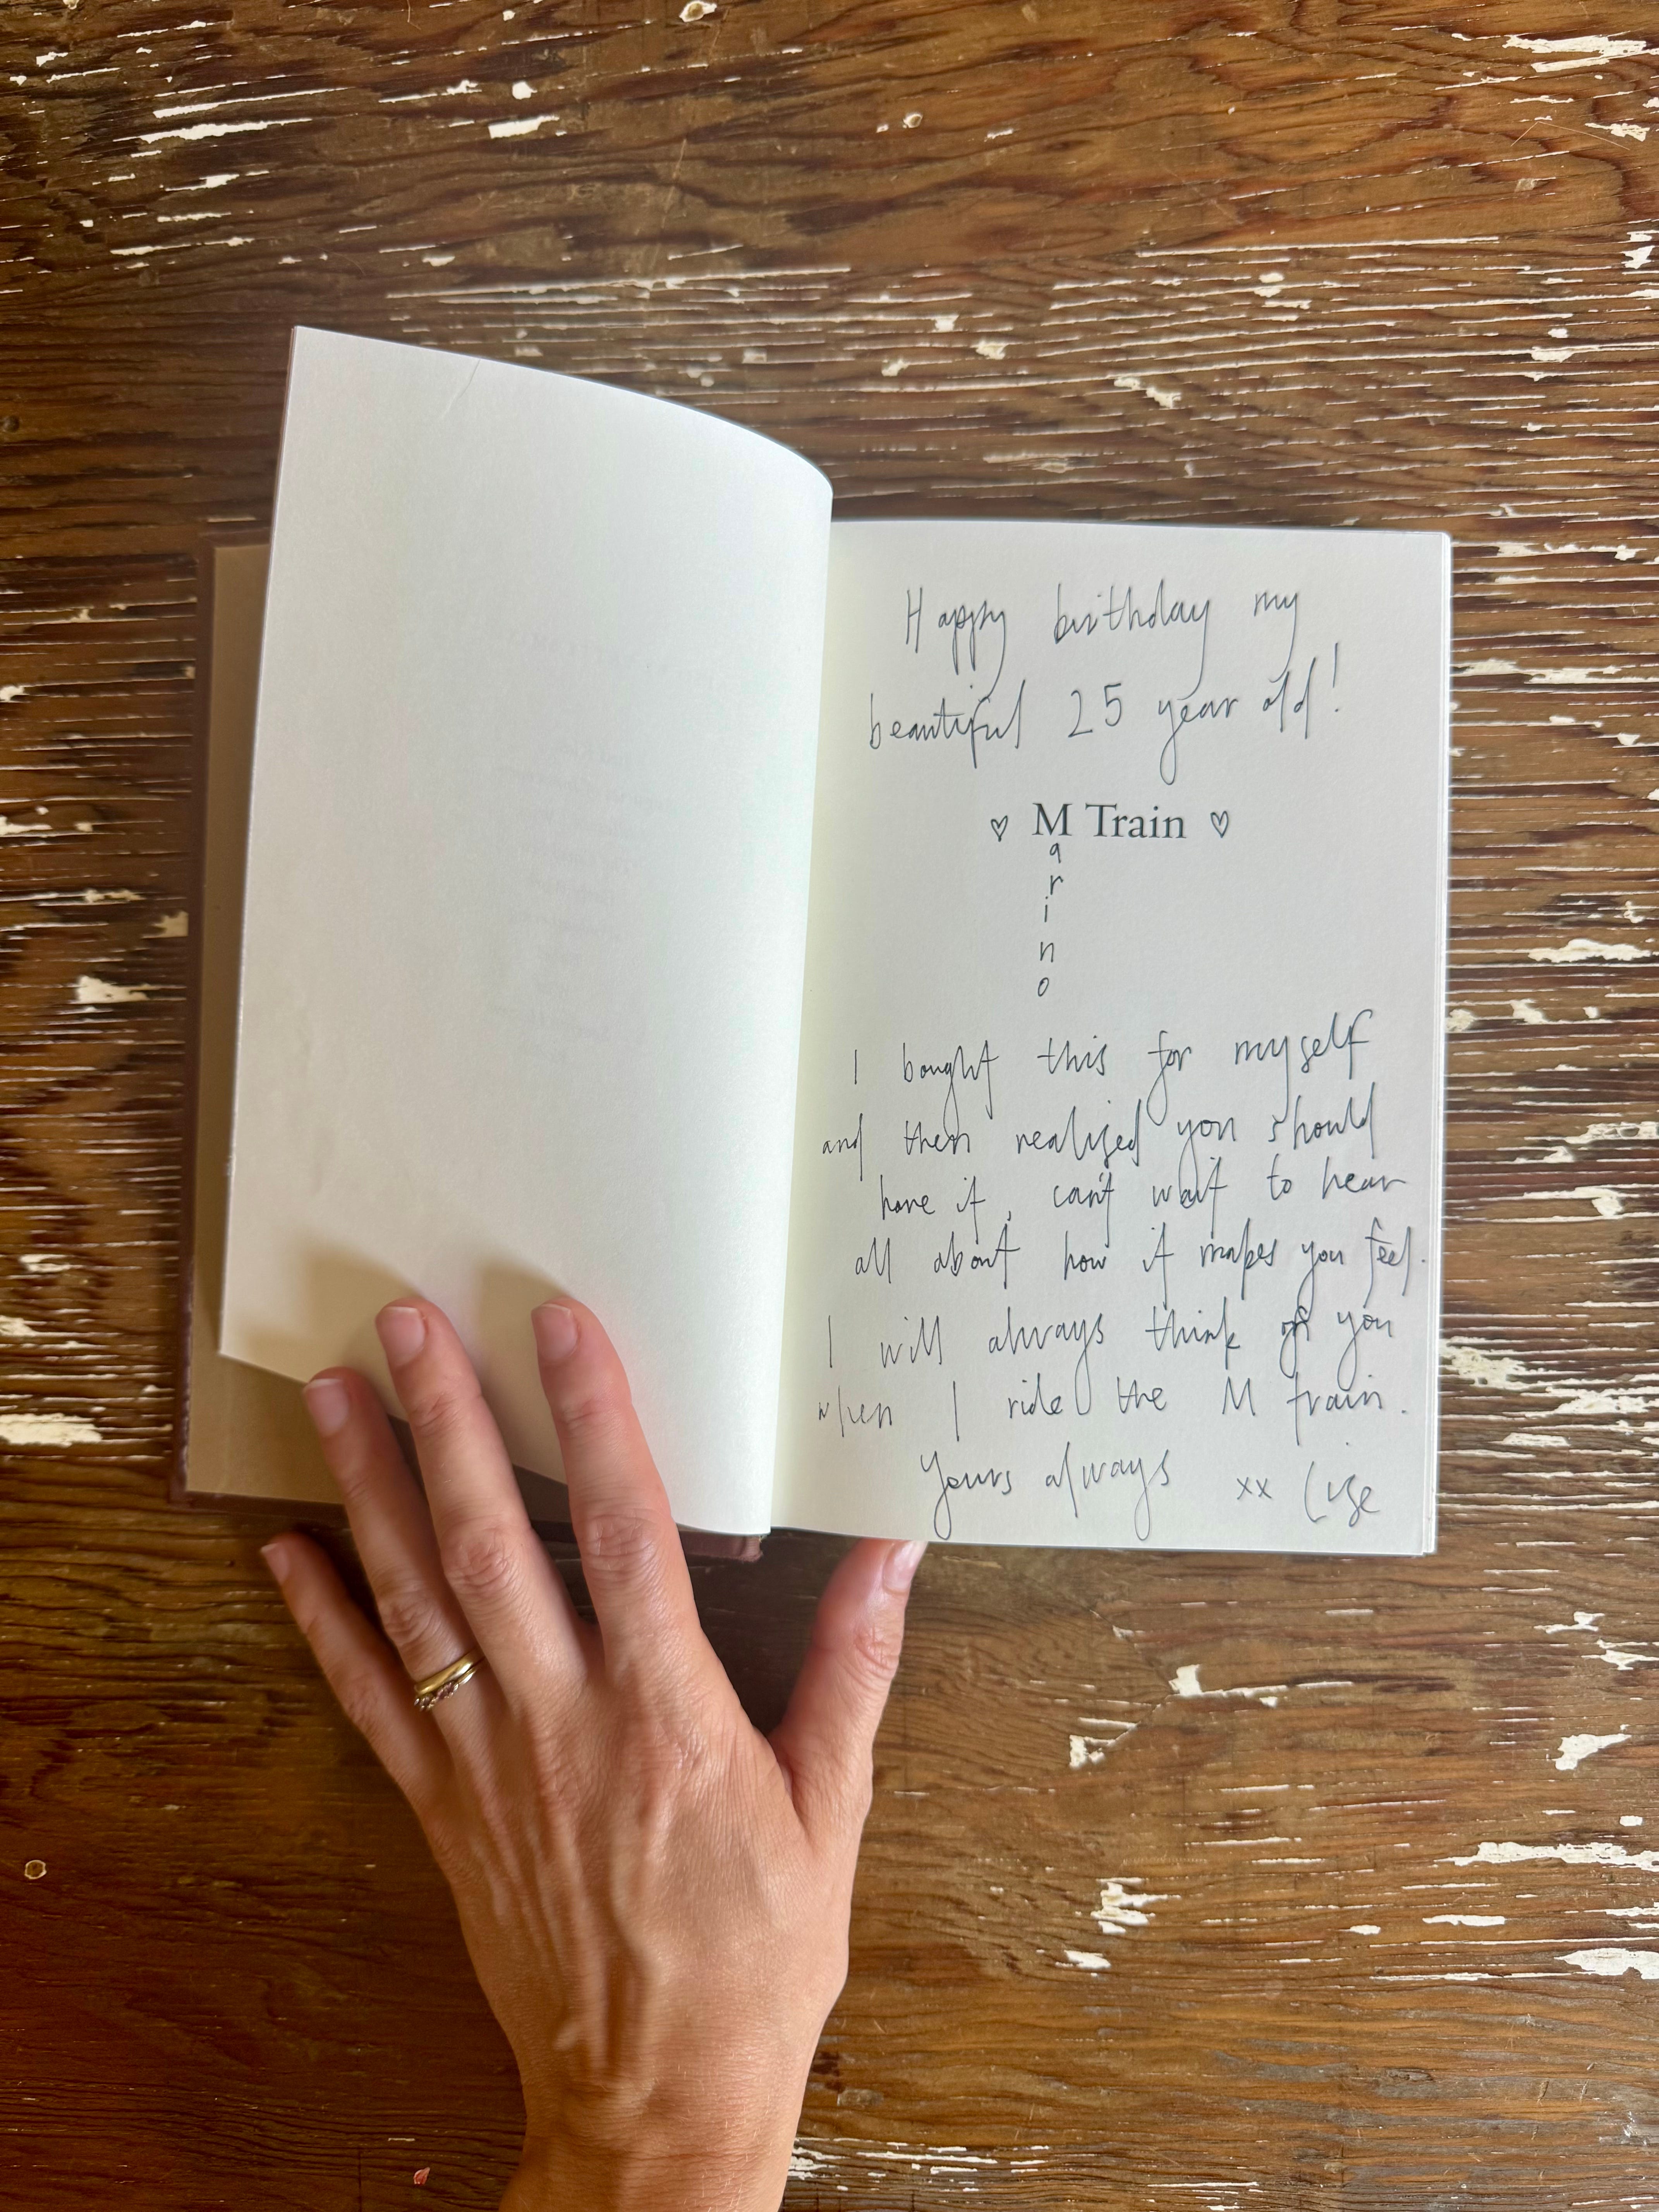 Happy birthday my
beautiful 25 year old!
♡ M Train ♡
a
r
i
n
o
I bought this for myself
and then realised you should
have it, can't wait to hear
all about how it makes you feel.
I will always think of you
when I ride the M train.
Yours always xx Lise